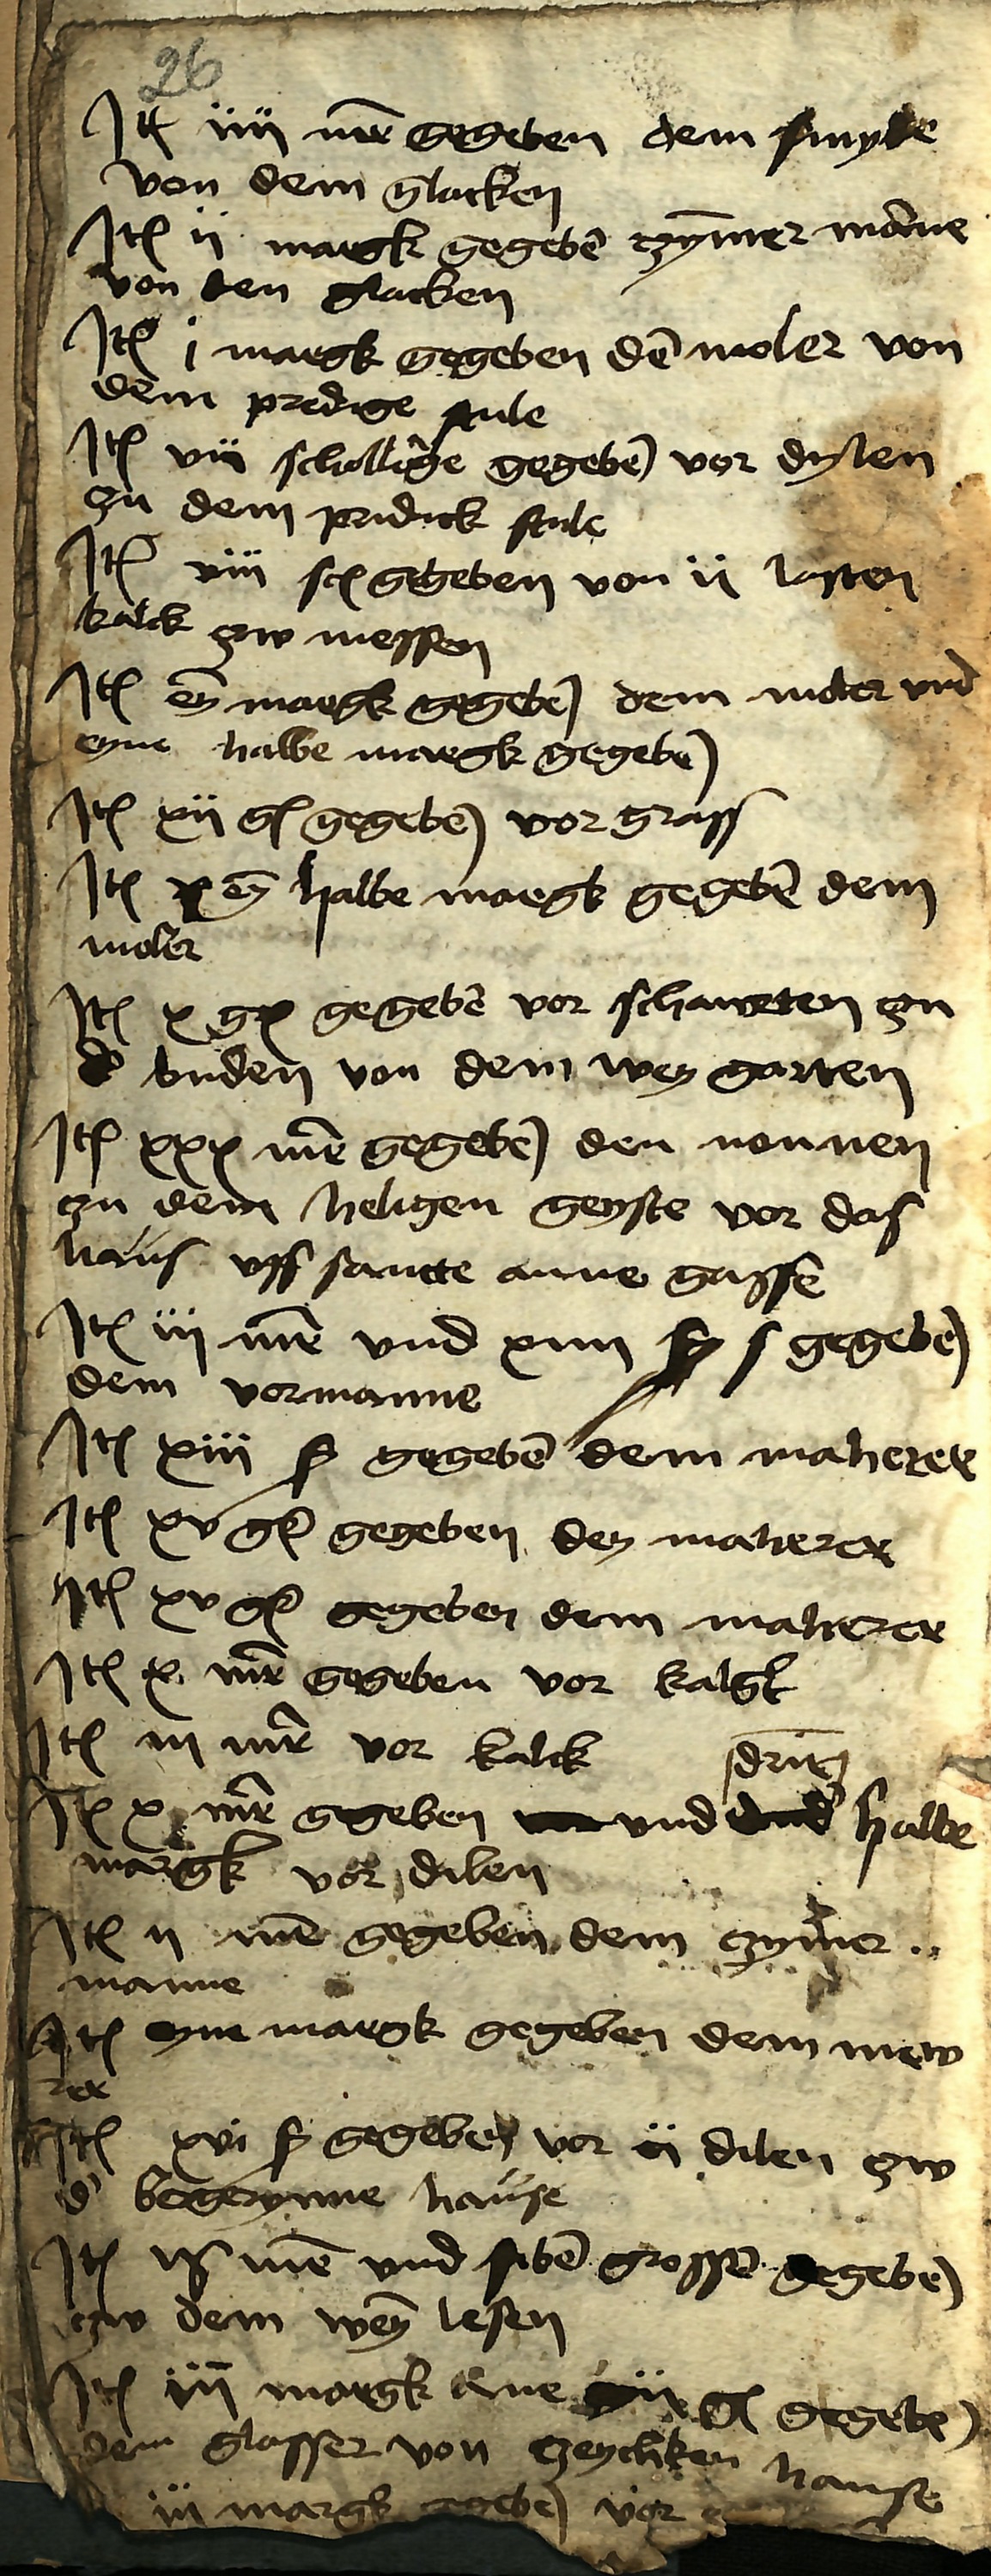 26
Itē iiii mrc gegeben dem smyde
von dem glacken
Itē ii margk gegebē czȳmer mānne
von den glacken
Itē i margk gegeben dē moler von
dem predige stule
Itē viii schillīge gegebē vor dylen
zu dem predick stule
Itē viii sch gegeben von ii lasten
kalck zw messen
Itē eȳ margk gegebē dem moler vnd
eyne halbe margk gegebē
Itē xii gſ gegebē vor grass
Itē eȳ halbe margk gegebē dem
moler
Itē x gr gegebē vor schaweten zu
d' buden von dem weyngarten
Itē xxx mrc gegebē den nonnen
zu dem heligen geyste vor das
haus vff sancte anne gassē
Itē iii mrc vnd xiiii ß gegebē
dem vormanne
Itē xiii ß gegebē dem maherer
Itē xv gr gegeben dem maherer
Itē xv gr gegeben dem maherer
Itē x mrc gegeben vor kalgk
Itē iii mrc vor kalck
drit
Itē x mrc gegeben vnd halbe
margk vor dilen
Itē ii mrc gegeben dem czym̄er
manne
Itē eyne margk gegeben dem mew
rer
Itē xvi ß gegeben vor ii dilen zw
d' begerynne hause
Itē mrc vnd sibē grossē gegebē
czw dem weȳ lesen
Itē iii margk ane gſ gegebē
dem glasser von hause
iii margk gegebē vor